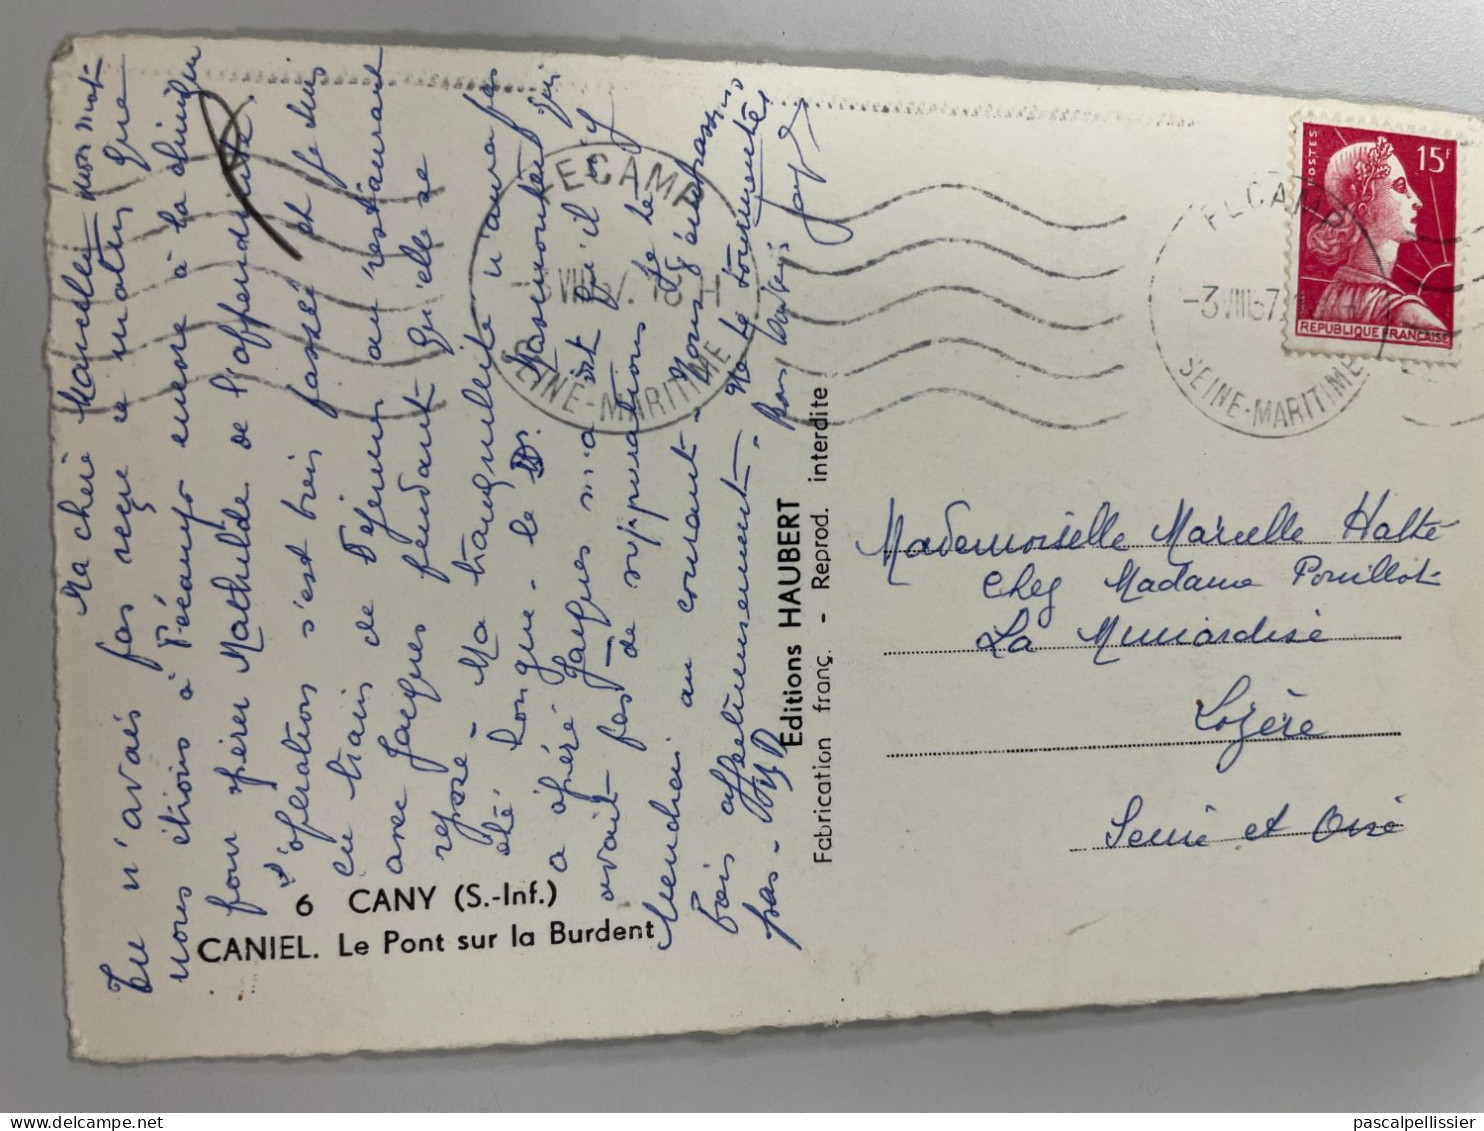 Ma chère Marcelle mon mot
Tu n'avais pas reçu ce matin que
nous étions à Fécamp encore à la clinique
pour opérer Mathilde de l'appendicite.
L'opération s'est bien passée et je suis
en train de déjeuner au restaurant
avec Jacques pendant qu'elle se
repose - Ma tranquillité n'aura pas
été longue - le Dr. qui
a opéré Jacques m'a dit qu'il n'y
avait pas de suppurations - Je te
tiendrai au courant - Nous t'embrassons
bien affectueusement - Ne te tourmentes
pas -
Bons baisers
6 CANY (S.-Inf.)
CANIEL. Le Pont sur la Burdent
Editions HAUBERT
Fabrication franç. - Reprod. interdite
FECAMP
SEINE-MARITIME
FECAMP
-3 VIII 57
SEINE-MARITIME
POSTES
15F
REPUBLIQUE FRANCAISE
Mademoiselle Marcelle Halté
chez Madame Pouillot
La Mignardise
Lozère
Seine et Oise
pascalpellissier